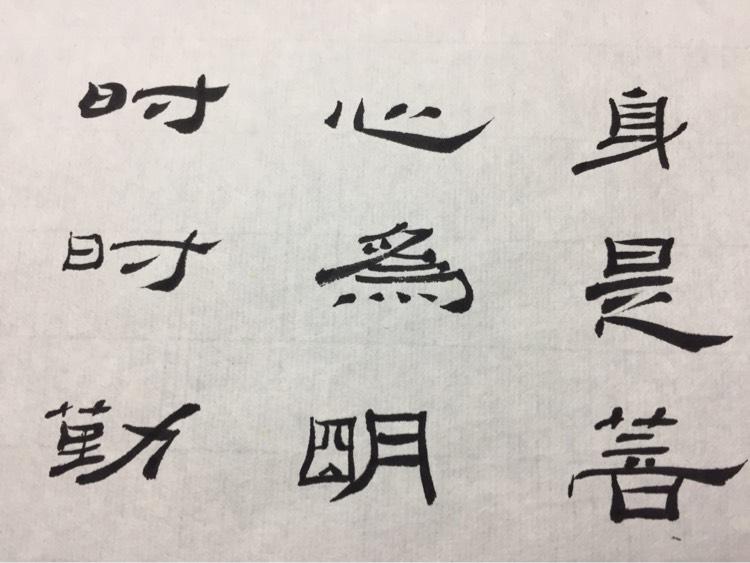 身是菩
心為明
时时勤